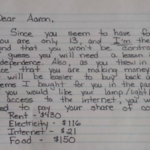 Dear Aaron,
Since you seem to have for
ou are only 13, and I'm the
nd that you won't be contro
guess you will need a lesson i
dependence. Also, as you threw in
ce that you are making money
will be easier to buy back a
ems I bought for you in the pas
you would like your lamp/light
access to the internet, you'
d to pay your share of cos
Rent - $430
Electricity - $116
Internet - $21
Food - $150